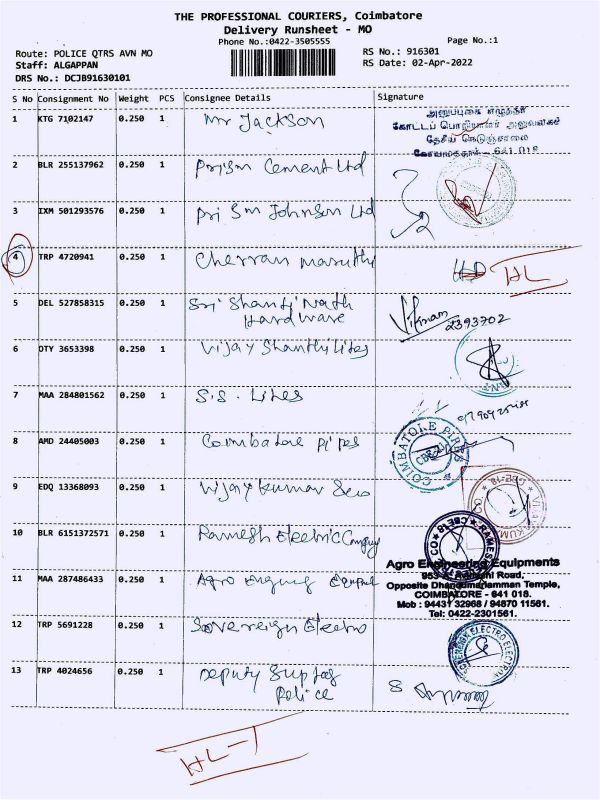 THE PROFESSIONAL COURIERS, Coimbatore
Delivery Runsheet - MO
Phone No.:0422-3505555
Page No.:1
Route: POLICE QTRS AVN MO
RS No.: 916301
Staff: ALGAPPAN
RS Date: 02-Apr-2022
DRS No.: DCJB91630101
S No Consignment No Weight PCS Consignee Details Signature
1 KTG 7102147 0.250 1 Mr Jackson
அனுப்புகை எழுத்தர்
கோட்டப் பொறியாளர் அலுவலகம்
தேசிய நெடுஞ்சாலை
641 018
2 BLR 255137962 0.250 1 Prism Cement Ltd
3 IXM 501293576 0.250 1 Pri Sm Johnson Ltd
4 TRP 4720941 0.250 1 Cherran maruthi HL
5 DEL 527858315 0.250 1 Sri Shanti Nath
Hardware
2393702
6 OTY 3653398 0.250 1 Vijay Shanthi Lites
7 MAA 284801562 0.250 1 S.S. Lites
8 AMD 24405003 0.250 1 Coimbatore pipes
COIMBATORE PIPES
CBE-
9 EDQ 13368093 0.250 1 Vijay kumar
CBE-18
10 BLR 6151372571 0.250 1 Ramesh Electric Company
CBE18
Agro Engineering Equipments
Opposite Dhandumariamman Temple,
COIMBATORE - 641 018.
Mob : 94431 32968 / 94870 11561.
Tel: 0422-2301561.
11 MAA 287486433 0.250 1 Agro
12 TRP 5691228 0.250 1 Sovereign Electro
SOVEREIGN ELECTRO
13 TRP 4024656 0.250 1 Deputy Sup
Police
HL-1